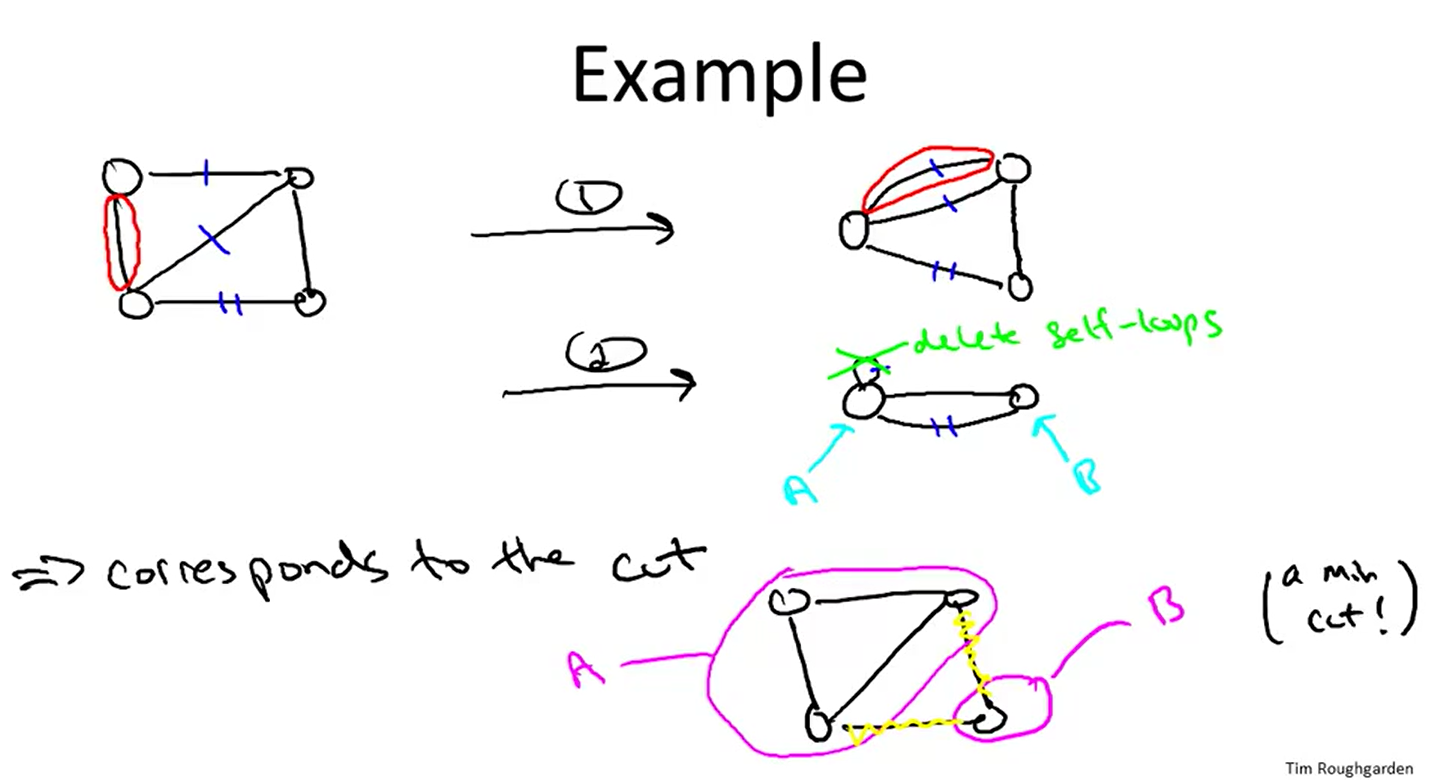 Example
①
②
delete self-loops
A
B
=> corresponds to the cut
A
B
(a min
cut!)
Tim Roughgarden